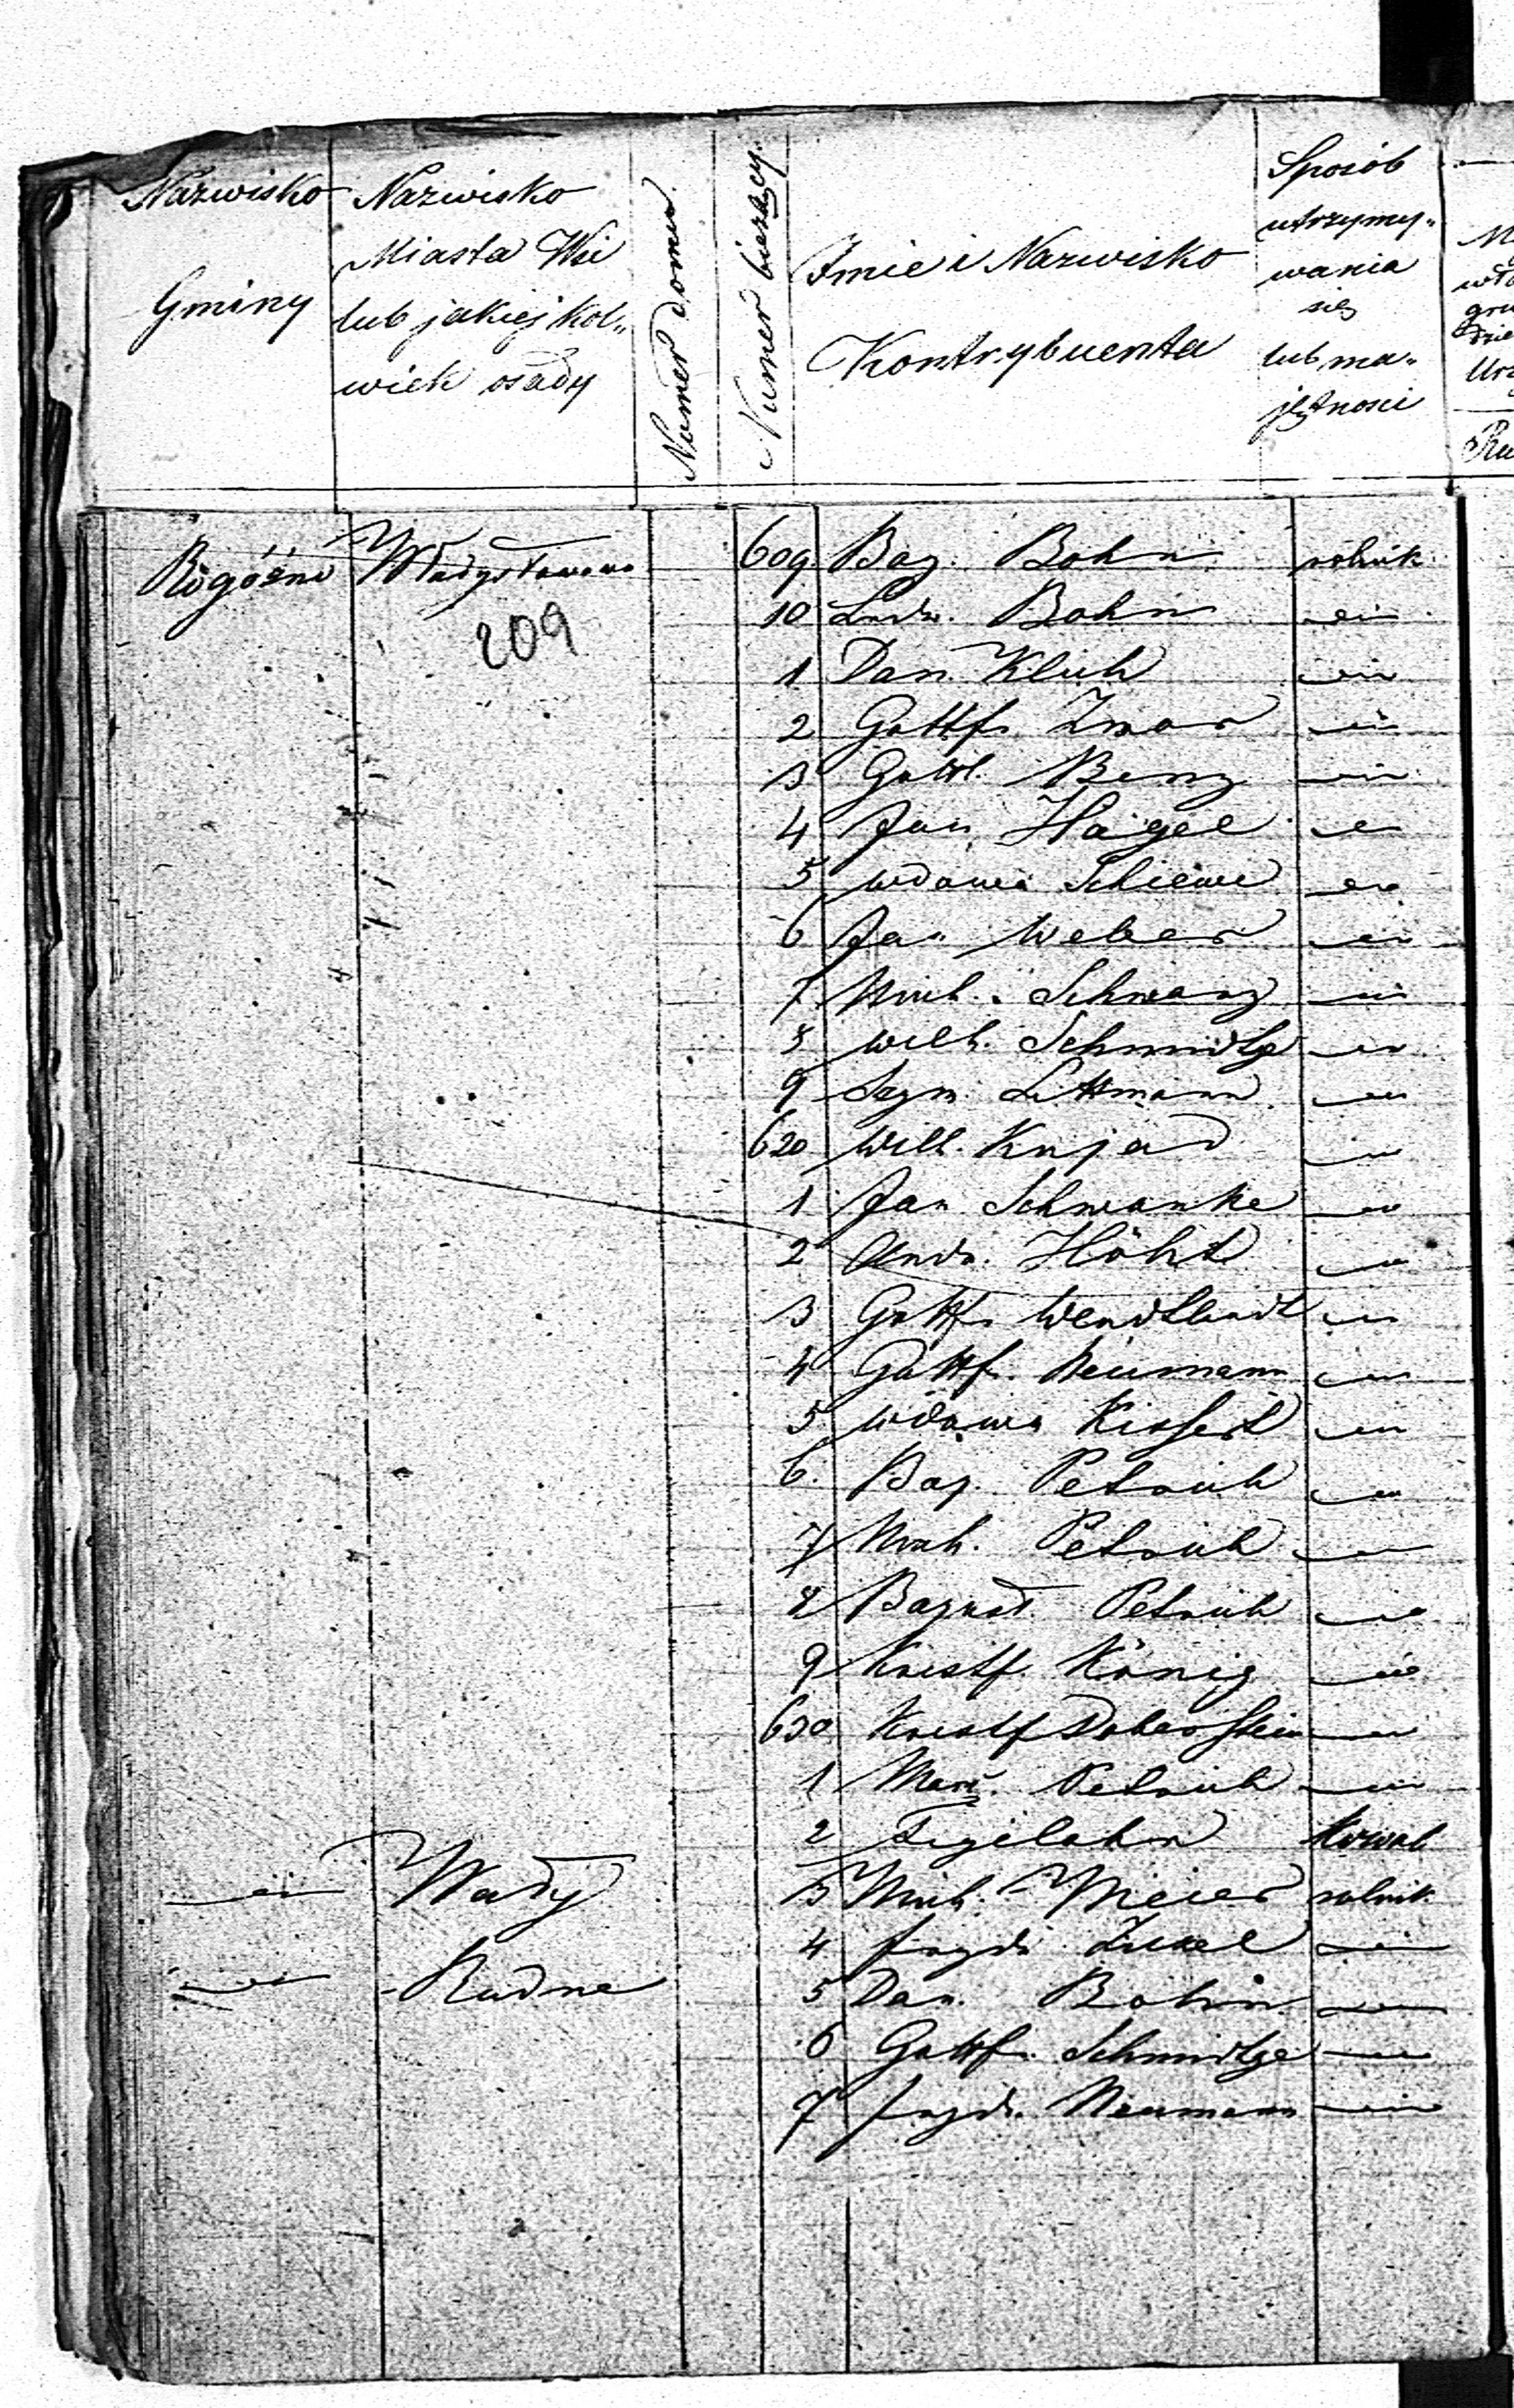 Nazwisko Gminy
Nazwisko Miasta Wsi lub jakiej kol„ wiek osady
Numer domu
Numer bieżący.
Imie i Nazwisko Kontrybuenta
Sposób utrzymy„ wania się lub ma„ jętności
Rogóźno Władysławowo 609. Bog. Bohn rolnik
209
10 Ludw. Bohn
1 Dan. Kluk
2 Gottfr.
3 Gottl. Benz
4 Jan Hagel
5 wdowa Schiewe
6 Jan Weber
7 Mich. Schwarz
8 Wilh. Schmidtge
9 Zygm. Littmann
620 Wilh. Kujad
1 Jan Schwanke
2 Andr. Höht
3 Gottfr. Wendtlandt
4 Gottfr. Neumann
5 wdowa Kissert
6. Bog. Petrich
7 Mich. Petrich
8 Petrich
9 Kristf. König
630 Kristf Doberstein
1 Mar. Petrich
2 kowal
Wady 3 Mich. Meier rolnik
4 Frydr.
Rudne 5 Dan. Bohn
6 Gottfr. Schmidtge
7 Frydr. Neumann